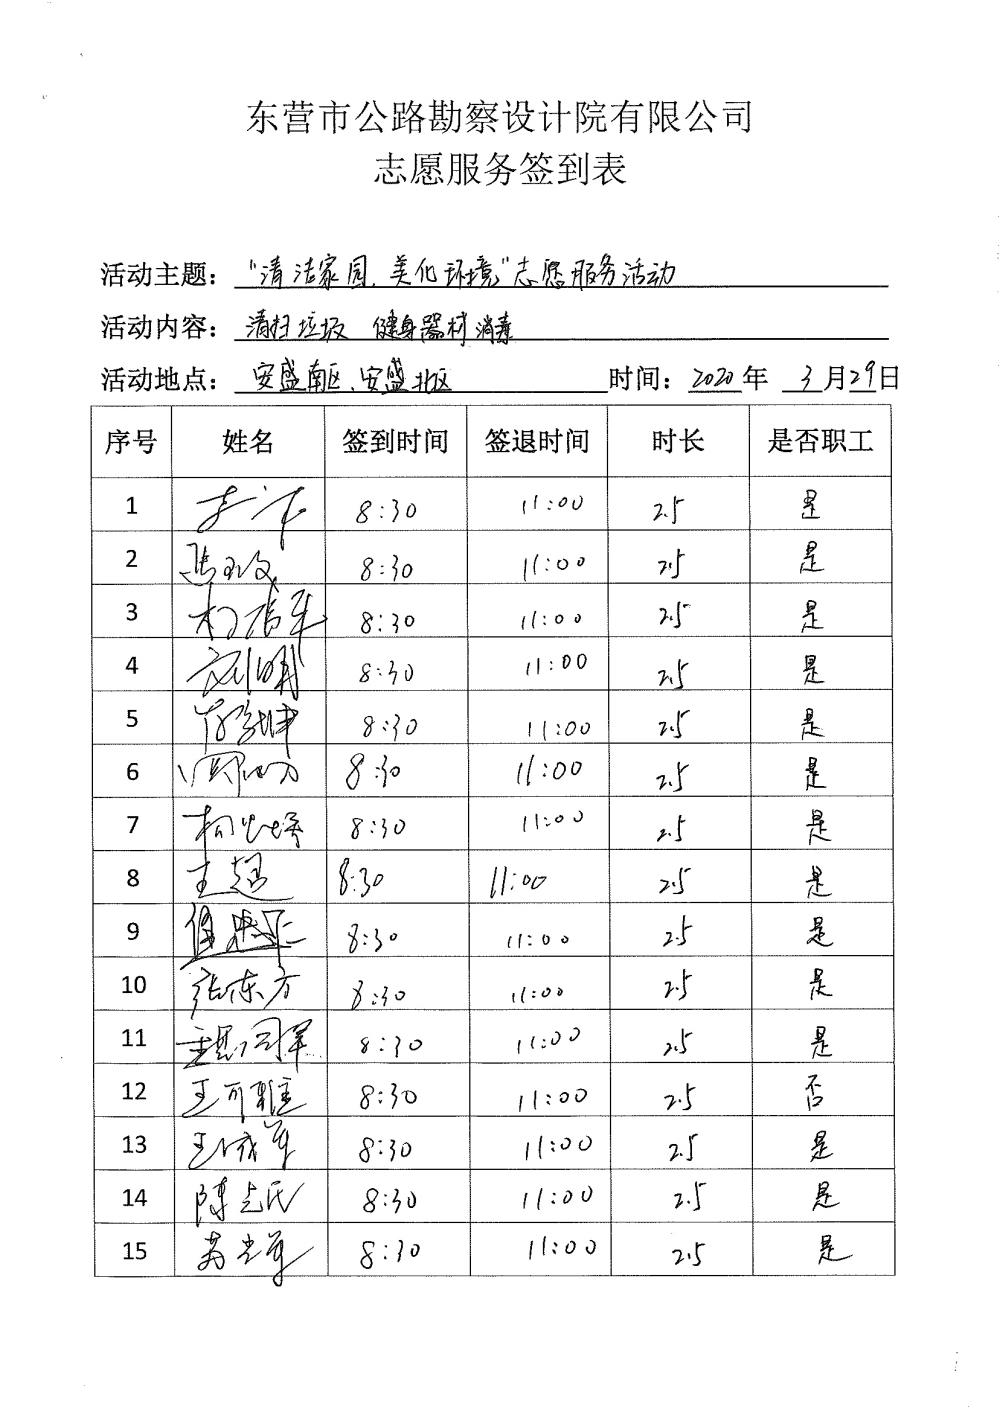 东营市公路勘察设计院有限公司
志愿服务签到表
活动主题：“清洁家园、美化环境”志愿服务活动
活动内容：清扫垃圾 健身器材消毒
活动地点：安盛南区、安盛北区 时间：2020年 3月29日
序号 姓名 签到时间 签退时间 时长 是否职工
1 8:30 11:00 2.5 是
2 8:30 11:00 2.5 是
3 8:30 11:00 2.5 是
4 刘明 8:30 11:00 2.5 是
5 8:30 11:00 2.5 是
6 8:30 11:00 2.5 是
7 8:30 11:00 2.5 是
8 王超 8:30 11:00 2.5 是
9 8:30 11:00 2.5 是
10 张东方 8:30 11:00 2.5 是
11 8:30 11:00 2.5 是
12 王可雅 8:30 11:00 2.5 否
13 王成军 8:30 11:00 2.5 是
14 陈志民 8:30 11:00 2.5 是
15 8:30 11:00 2.5 是